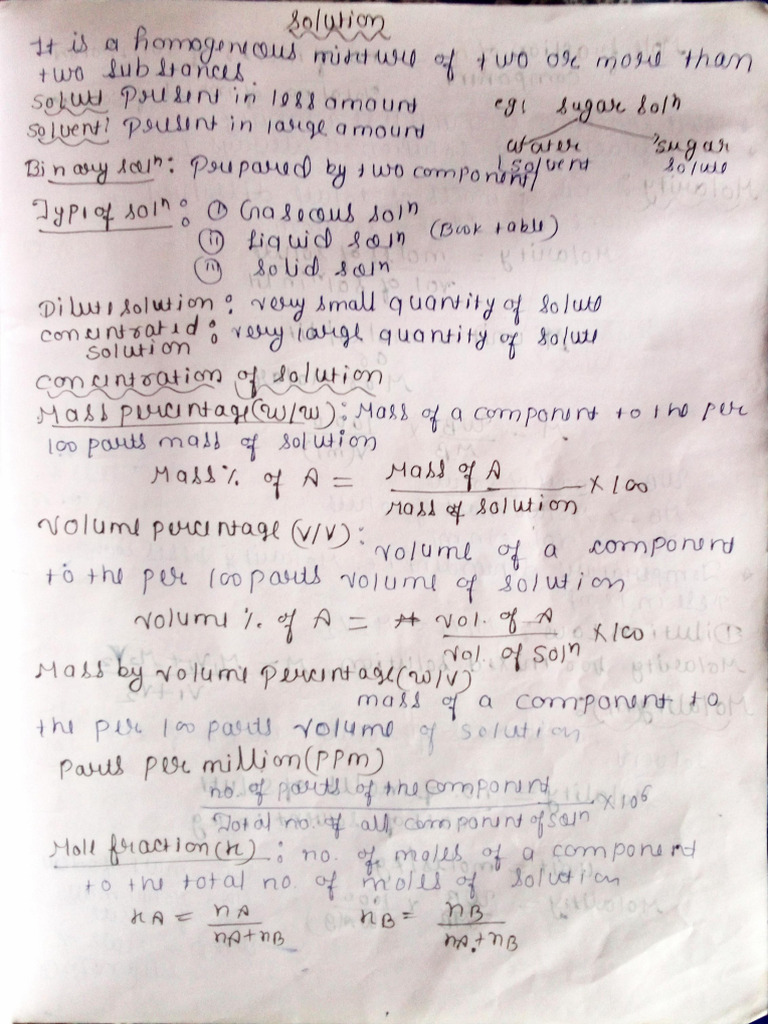 Solution
It is a homogeneous mixture of two or more than
two substances.
solute present in less amount
eg: sugar soln
solvent: present in large amount
water sugar
solvent solute
Binary soln: Prepared by two component
Type of soln: (i) Gaseous soln
(ii) Liquid soln (Book table)
(iii) solid soln
Dilute solution: very small quantity of solute
concentrated: very large quantity of solute
solution
concentration of solution
Mass percentage (w/w): Mass of a component to the per
100 parts mass of solution
Mass % of A = Mass of A / Mass of solution × 100
Volume percentage (V/V): volume of a component
to the per 100 parts volume of solution
volume % of A = vol. of A / vol. of soln × 100
Mass by volume percentage (w/v)
mass of a component to
the per 100 parts volume of solution
Parts per million (PPm)
no. of parts of the component / Total no. of all component of soln × 10⁶
Mole fraction (x): no. of moles of a component
to the total no. of moles of solution
xA = nA / nA + nB xB = nB / nA + nB